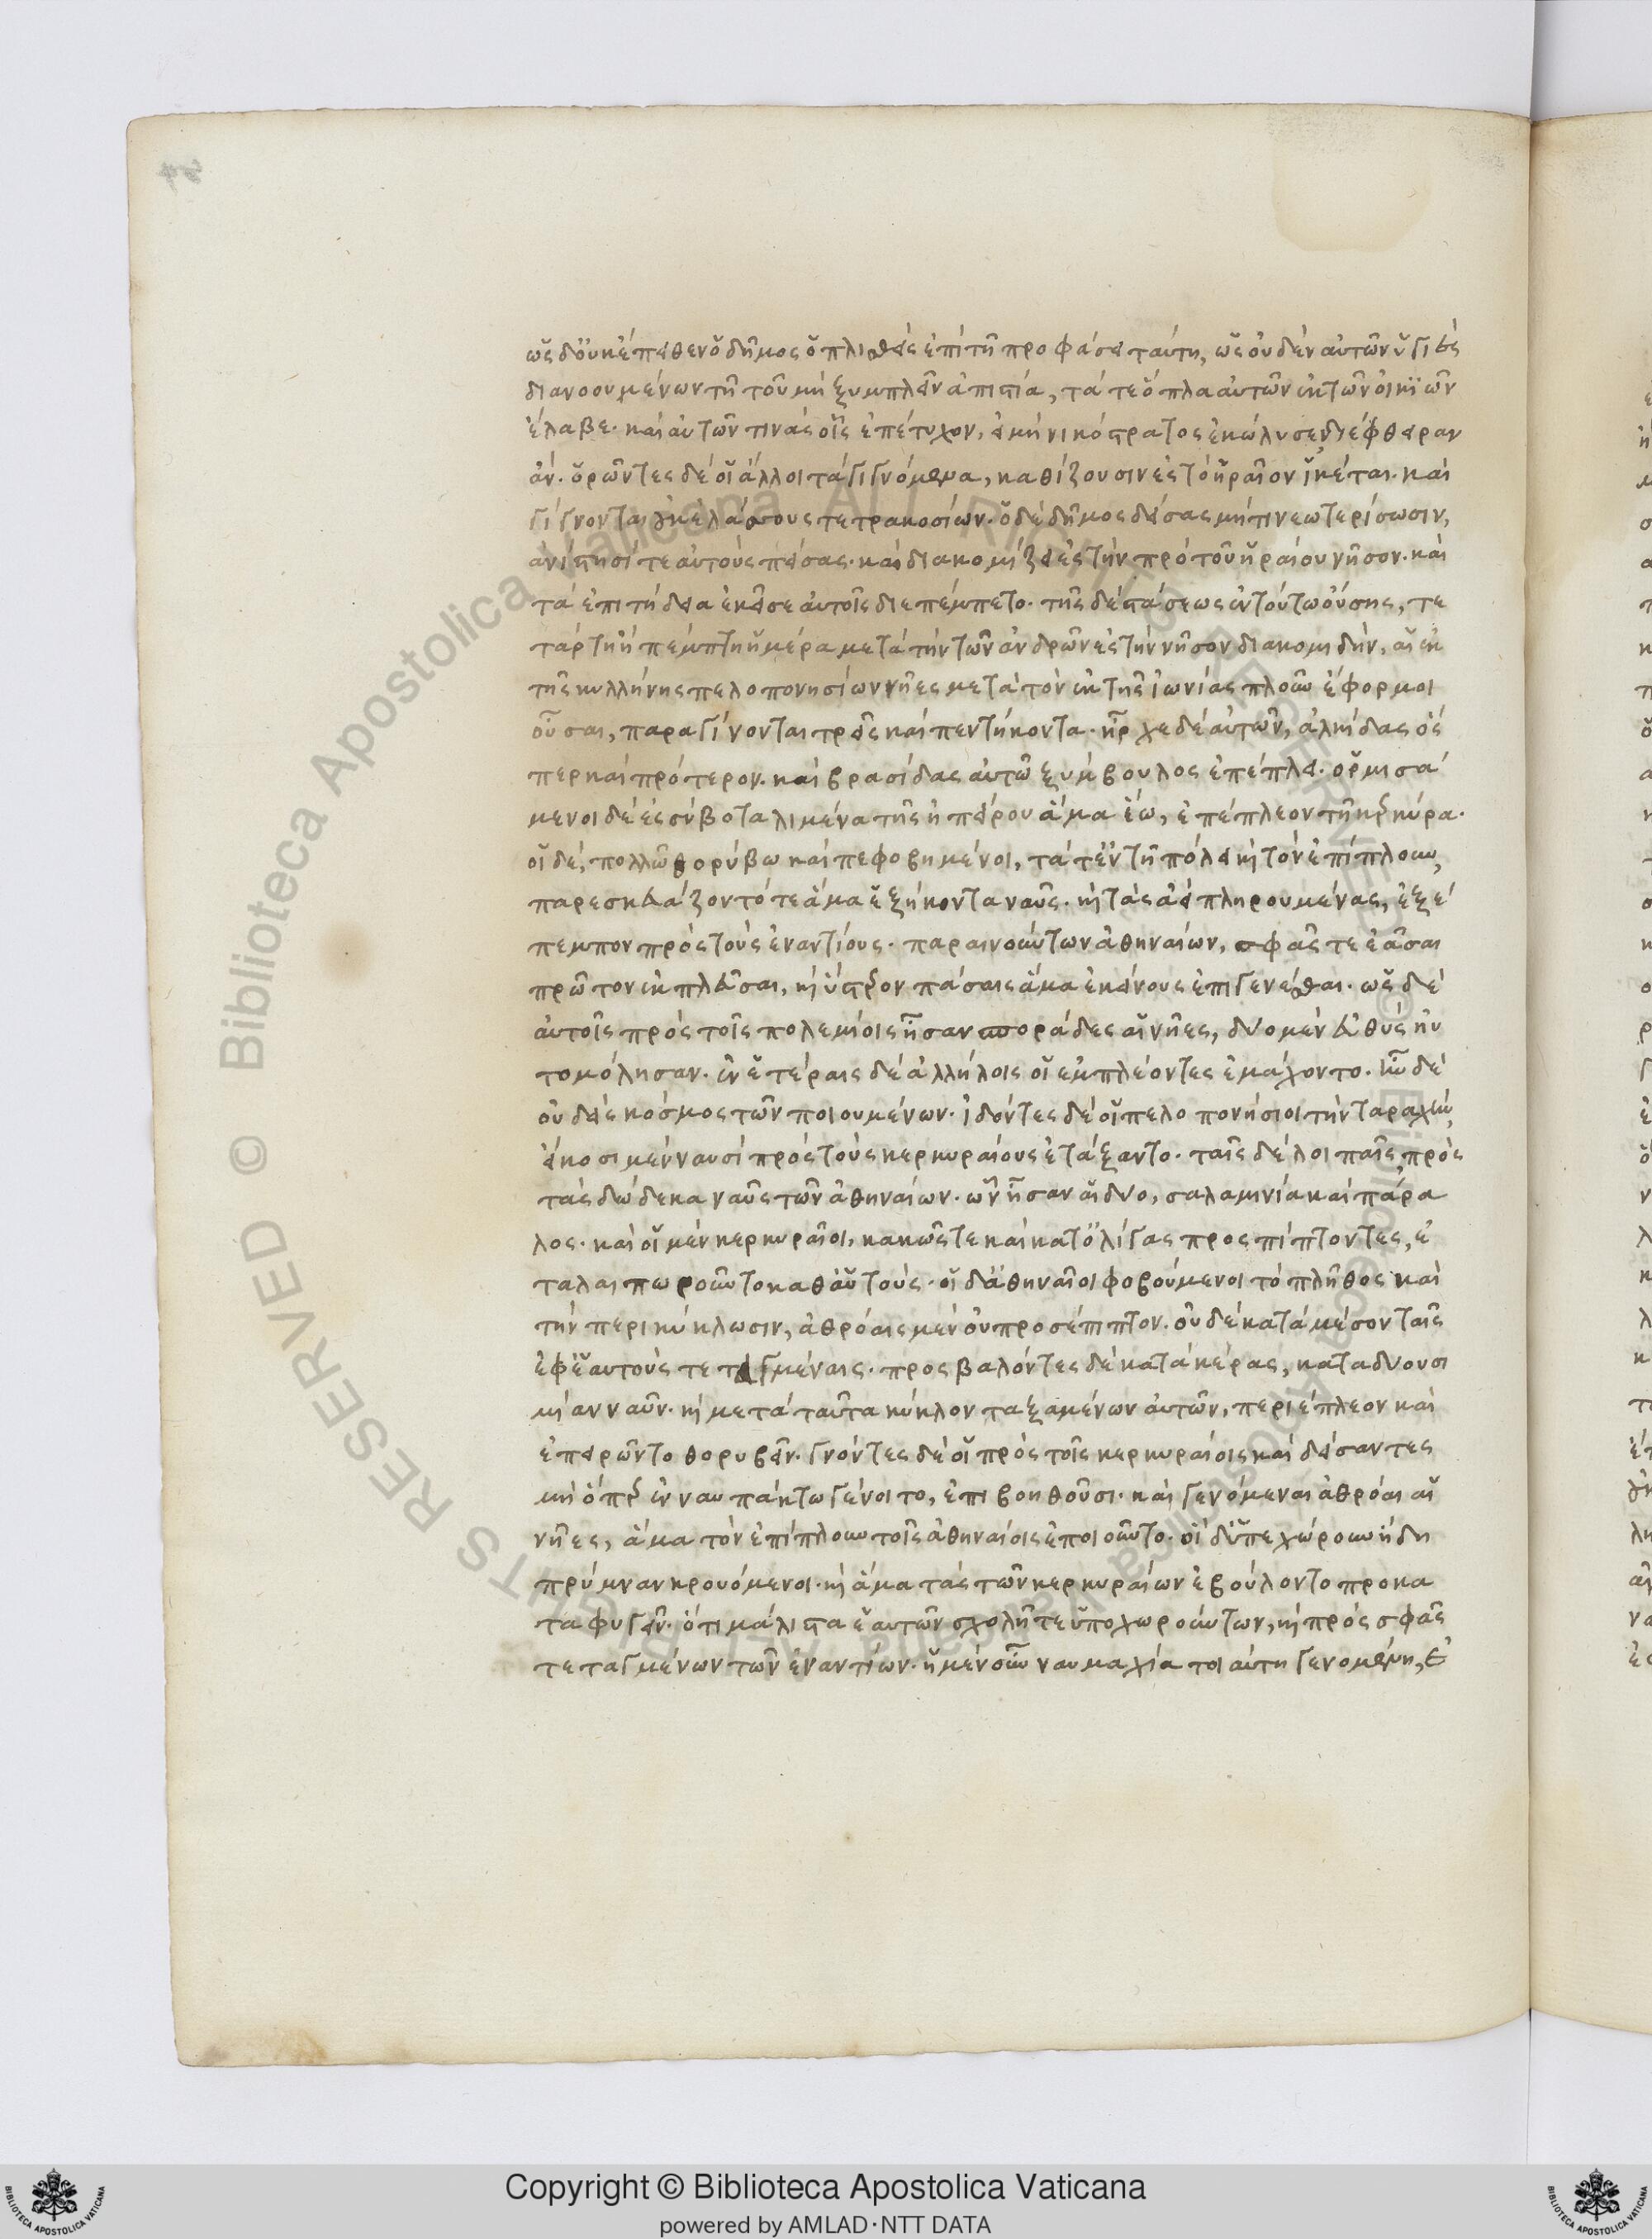 ὡς δ' οὐκ ἔπειθεν ὁ δῆμος ὁπλισθεὶς ἐπὶ τῇ προφάσει ταύτῃ, ὡς οὐδὲν αὐτῶν ὑγιὲς
διανοουμένων τῇ τοῦ μὴ ξυμπλεῖν ἀπιστίᾳ, τά τε ὅπλα αὐτῶν ἐκ τῶν οἰκιῶν
ἔλαβε· καὶ αὐτῶν τινὰς οἷς ἐπέτυχον, εἰ μὴ νικόστρατος ἐκώλυσε, διέφθειραν
ἄν. ὁρῶντες δὲ οἱ ἄλλοι τὰ γιγνόμενα, καθίζουσιν ἐς τὸ ἥραιον ἱκέται· καὶ
γίγνονται οὐκ ἐλάσσους τετρακοσίων. ὁ δὲ δῆμος δείσας μή τι νεωτερίσωσιν,
ἀνίστησί τε αὐτοὺς πείσας· καὶ διακομίζει ἐς τὴν πρὸ τοῦ ἡραίου νῆσον· καὶ
τὰ ἐπιτήδεια ἐκεῖσε αὐτοῖς διεπέμπετο. τῆς δὲ στάσεως ἐν τούτῳ οὔσης, τε
τάρτῃ ἢ πέμπτῃ ἡμέρᾳ μετὰ τὴν τῶν ἀνδρῶν ἐς τὴν νῆσον διακομιδὴν, αἱ ἐκ
τῆς κυλλήνης πελοπονησίων νῆες μετὰ τὸν ἐκ τῆς ἰωνίας πλοῦν ἔφορμοι
οὖσαι, παραγίνονται τρεῖς καὶ πεντήκοντα. ἦρχε δὲ αὐτῶν, ἀλκίδας ὅς
περ καὶ πρότερον. καὶ βρασίδας αὐτῷ ξύμβουλος ἐπέπλει. ὁρμισά
μενοι δὲ ἐς σύβοτα λιμένα τῆς ἠπείρου ἅμα ἕῳ, ἐπέπλεον τῇ κερκύρᾳ.
οἱ δὲ, πολλῷ θορύβῳ καὶ πεφοβημένοι, τά τ' ἐν τῇ πόλει καὶ τὸν ἐπίπλουν,
παρεσκευάζοντό τε ἅμα ἑξήκοντα ναῦς· καὶ τὰς ἀεὶ πληρουμένας, ἐξέ
πεμπον πρὸς τοὺς ἐναντίους· παραινούντων ἀθηναίων, σφᾶς τε ἐᾶσαι
πρῶτον ἐκπλεῦσαι, καὶ ὕστερον πάσαις ἅμα ἐκείνους ἐπιγενέσθαι. ὡς δὲ
αὐτοῖς πρὸς τοῖς πολεμίοις ἦσαν σποράδες αἱ νῆες, δύο μὲν εὐθὺς ηὐ
τομόλησαν. ἐν ἑτέραις δὲ ἀλλήλοις οἱ ἐμπλέοντες ἐμάχοντο. ἦν δὲ
οὐδεὶς κόσμος τῶν ποιουμένων. ἰδόντες δὲ οἱ πελοπονήσιοι τὴν ταραχὴν,
εἴκοσι μὲν ναυσὶ πρὸς τοὺς κερκυραίους ἐτάξαντο. ταῖς δὲ λοιπαῖς, πρὸς
τὰς δώδεκα ναῦς τῶν ἀθηναίων. ὧν ἦσαν αἱ δύο, σαλαμινία καὶ πάρα
λος. καὶ οἱ μὲν κερκυραῖοι, κακῶς τε καὶ κατ' ὀλίγας προσπίπτοντες, ἐ
ταλαιπωροῦντο καθ' αὑτούς. οἱ δ' ἀθηναῖοι φοβούμενοι τὸ πλῆθος καὶ
τὴν περικύκλωσιν, ἀθρόαις μὲν οὐ προσέπιπτον. οὐδὲ κατὰ μέσον ταῖς
ἐφ' ἑαυτοὺς τεταγμέναις. προσβαλόντες δὲ κατὰ κέρας, καταδύουσι
μίαν ναῦν. καὶ μετὰ ταῦτα κύκλον ταξαμένων αὐτῶν, περιέπλεον καὶ
ἐπειρῶντο θορυβεῖν. γνόντες δὲ οἱ πρὸς τοῖς κερκυραίοις καὶ δείσαντες
μὴ ὅπερ ἐν ναυπάκτῳ γένοιτο, ἐπιβοηθοῦσι. καὶ γενόμεναι ἀθρόαι αἱ
νῆες, ἅμα τὸν ἐπίπλουν τοῖς ἀθηναίοις ἐποιοῦντο. οἱ δ' ὑπεχώρουν ἤδη
πρύμναν κρουόμενοι. καὶ ἅμα τὰς τῶν κερκυραίων ἐβούλοντο προκα
ταφυγεῖν. ὅτι μάλιστα ἑαυτῶν σχολῇ τε ὑποχωρούντων, καὶ πρὸς σφᾶς
τεταγμένων τῶν ἐναντίων. ἡ μὲν οὖν ναυμαχία τοιαύτη γενομένη, ἐ
Copyright © Biblioteca Apostolica Vaticana
powered by AMLAD·NTT DATA